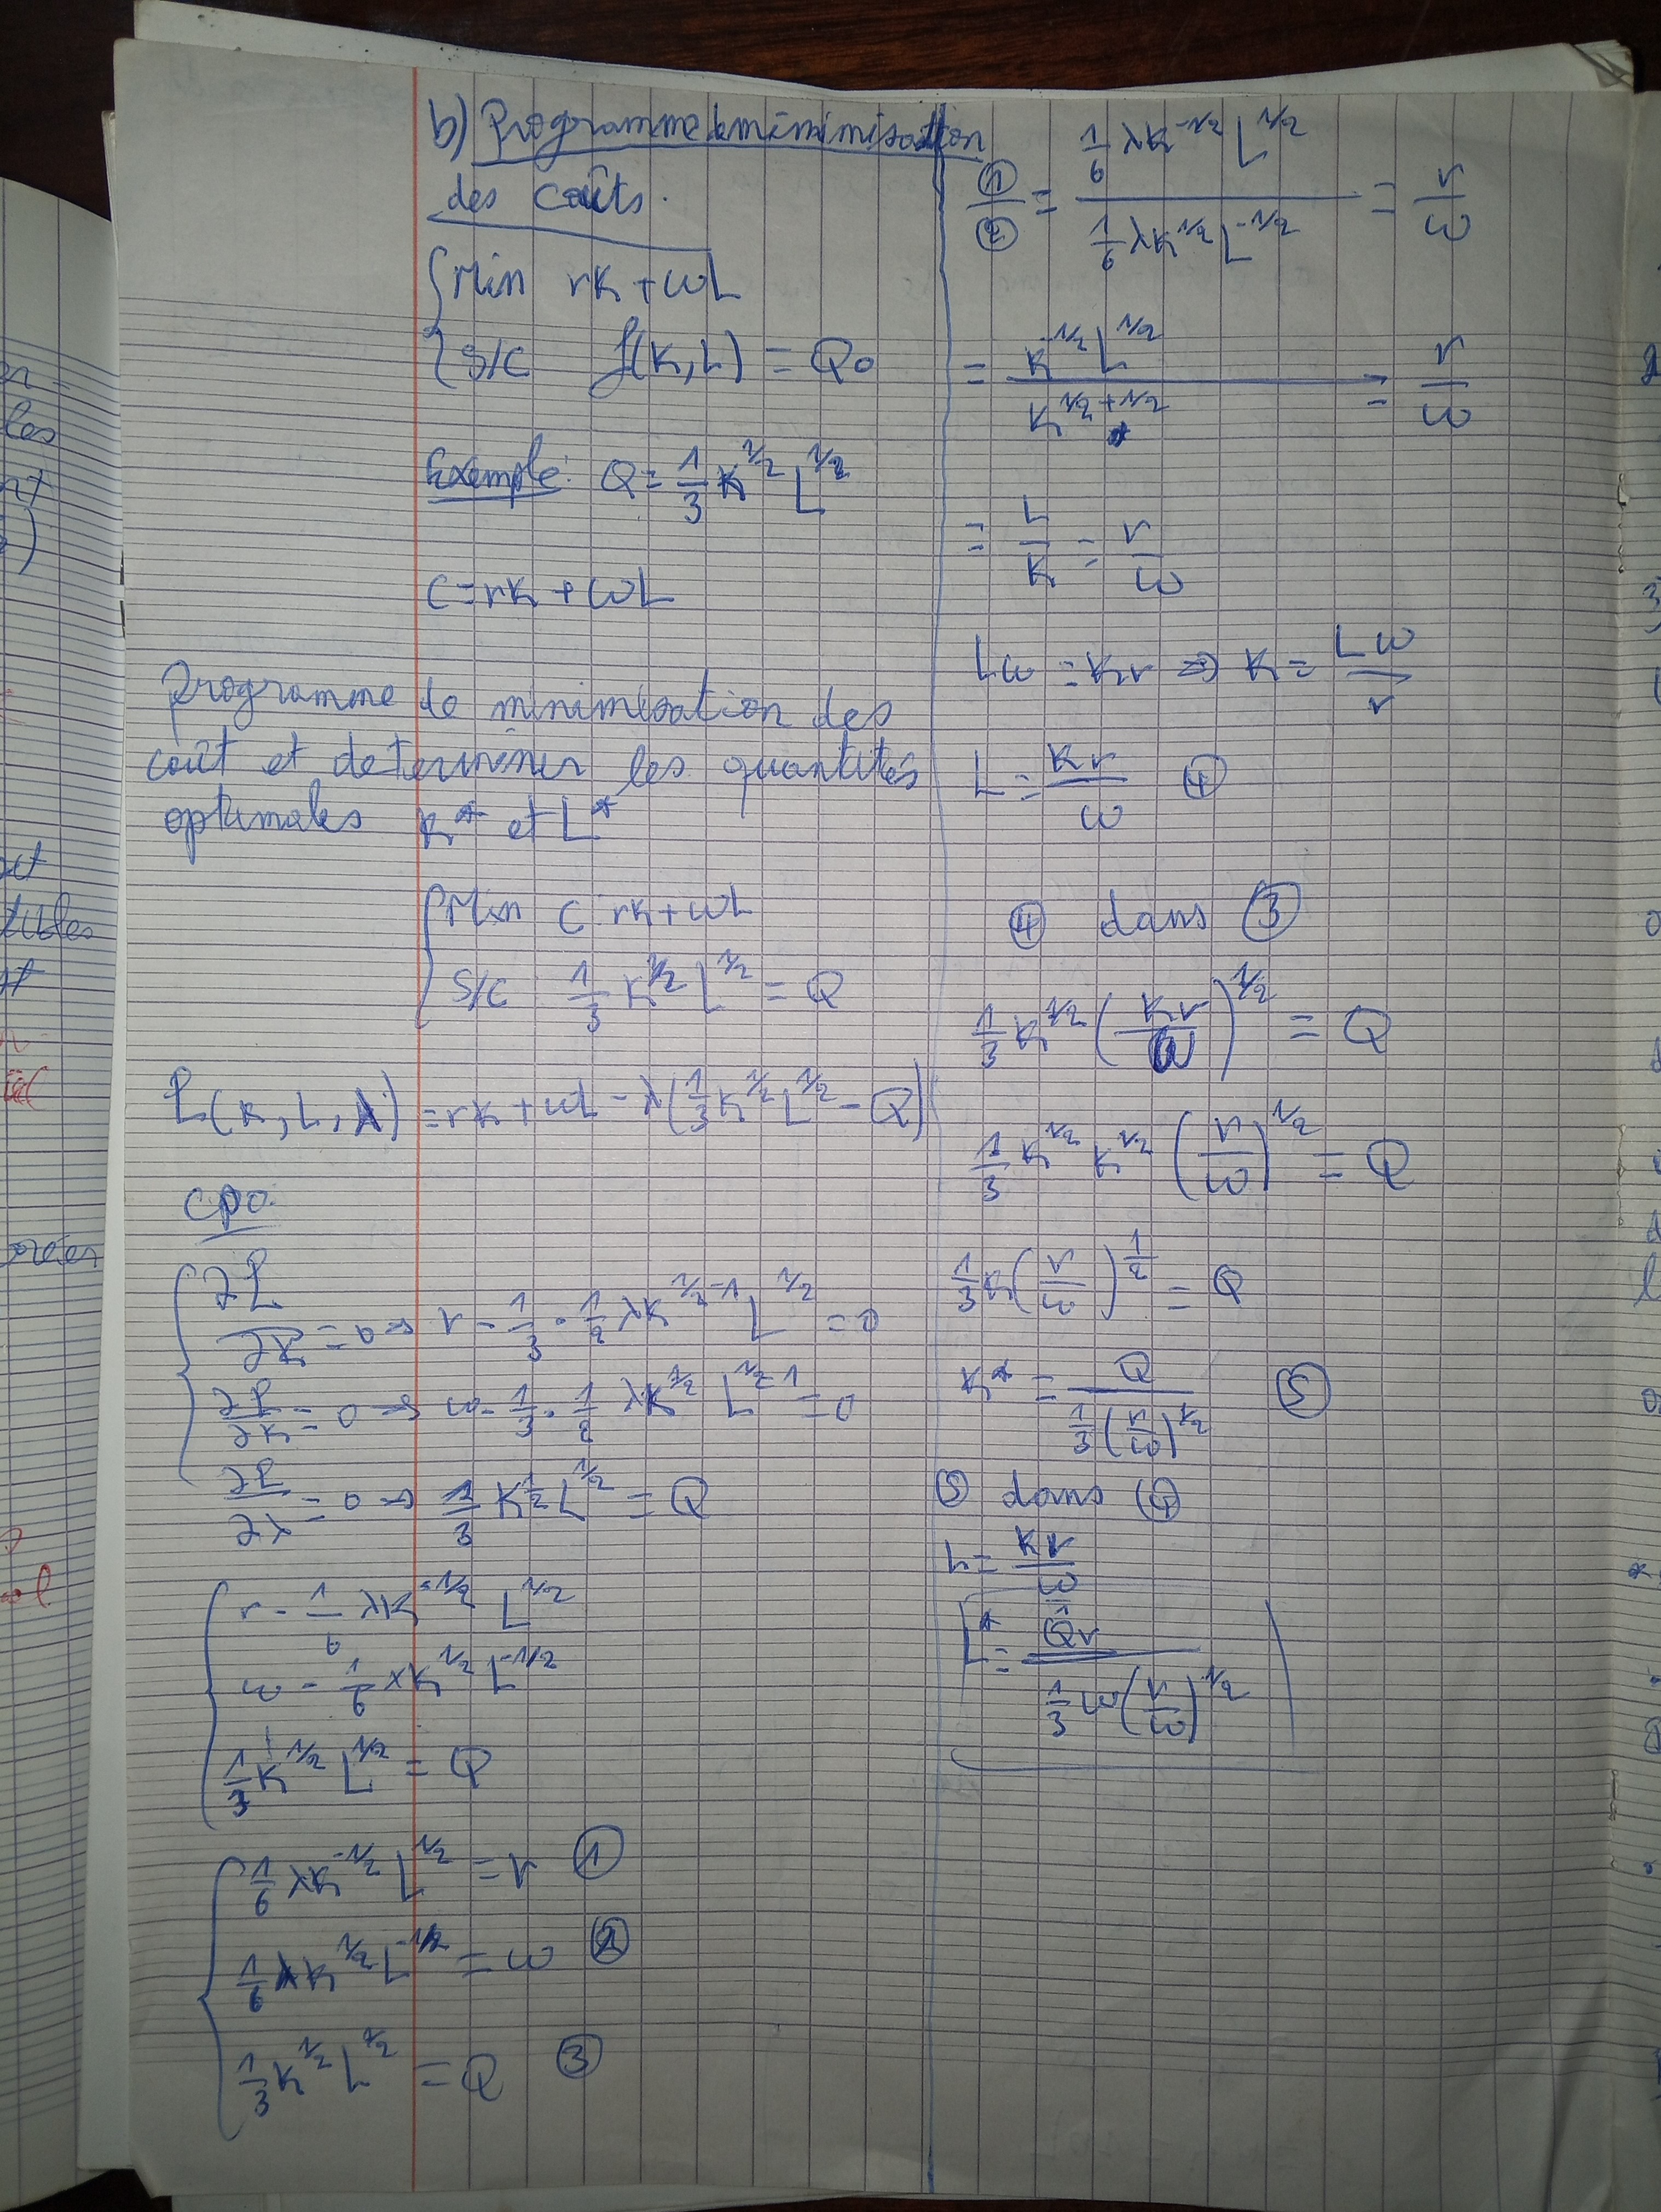 b) Programme de minimisation
des coûts.
Min rK + wL
S/C f(K, L) = Q0
Exemple: Q = 1/3 K^1/2 L^1/2
C = rK + wL
Programme de minimisation des
coût et determiner les quantités
optimales K* et L*
Min C rK + wL
S/C 1/3 K^1/2 L^1/2 = Q
L(K, L, λ) = rK + wL - λ(1/3 K^1/2 L^1/2 - Q)
CPO
∂L/∂K = 0 => r - 1/3 · 1/2 λK^1/2-1 L^1/2 = 0
∂L/∂K = 0 => w - 1/3 · 1/2 λK^1/2 L^1/2-1 = 0
∂L/∂λ = 0 => 1/3 K^1/2 L^1/2 = Q
r - 1/6 λK^-1/2 L^1/2
w - 1/6 λK^1/2 L^-1/2
1/3 K^1/2 L^1/2 = Q
1/6 λK^-1/2 L^1/2 = r ①
1/6 λK^1/2 L^-1/2 = w ②
1/3 K^1/2 L^1/2 = Q ③
①/② = (1/6 λK^-1/2 L^1/2)/(1/6 λK^1/2 L^-1/2) = r/w
= (K^-1/2 L^1/2)/(K^1/2+1/2) = r/w
= L/K = r/w
Lw = Kr => K = Lw/r
L = Kr/w ④
④ dans ③
1/3 K^1/2 (Kr/w)^1/2 = Q
1/3 K^1/2 K^1/2 (r/w)^1/2 = Q
1/3 K (r/w)^1/2 = Q
K* = Q/(1/3 (r/w)^1/2) ⑤
⑤ dans ④
L = Kr/w
L* = Qr/(1/3 w (r/w)^1/2)